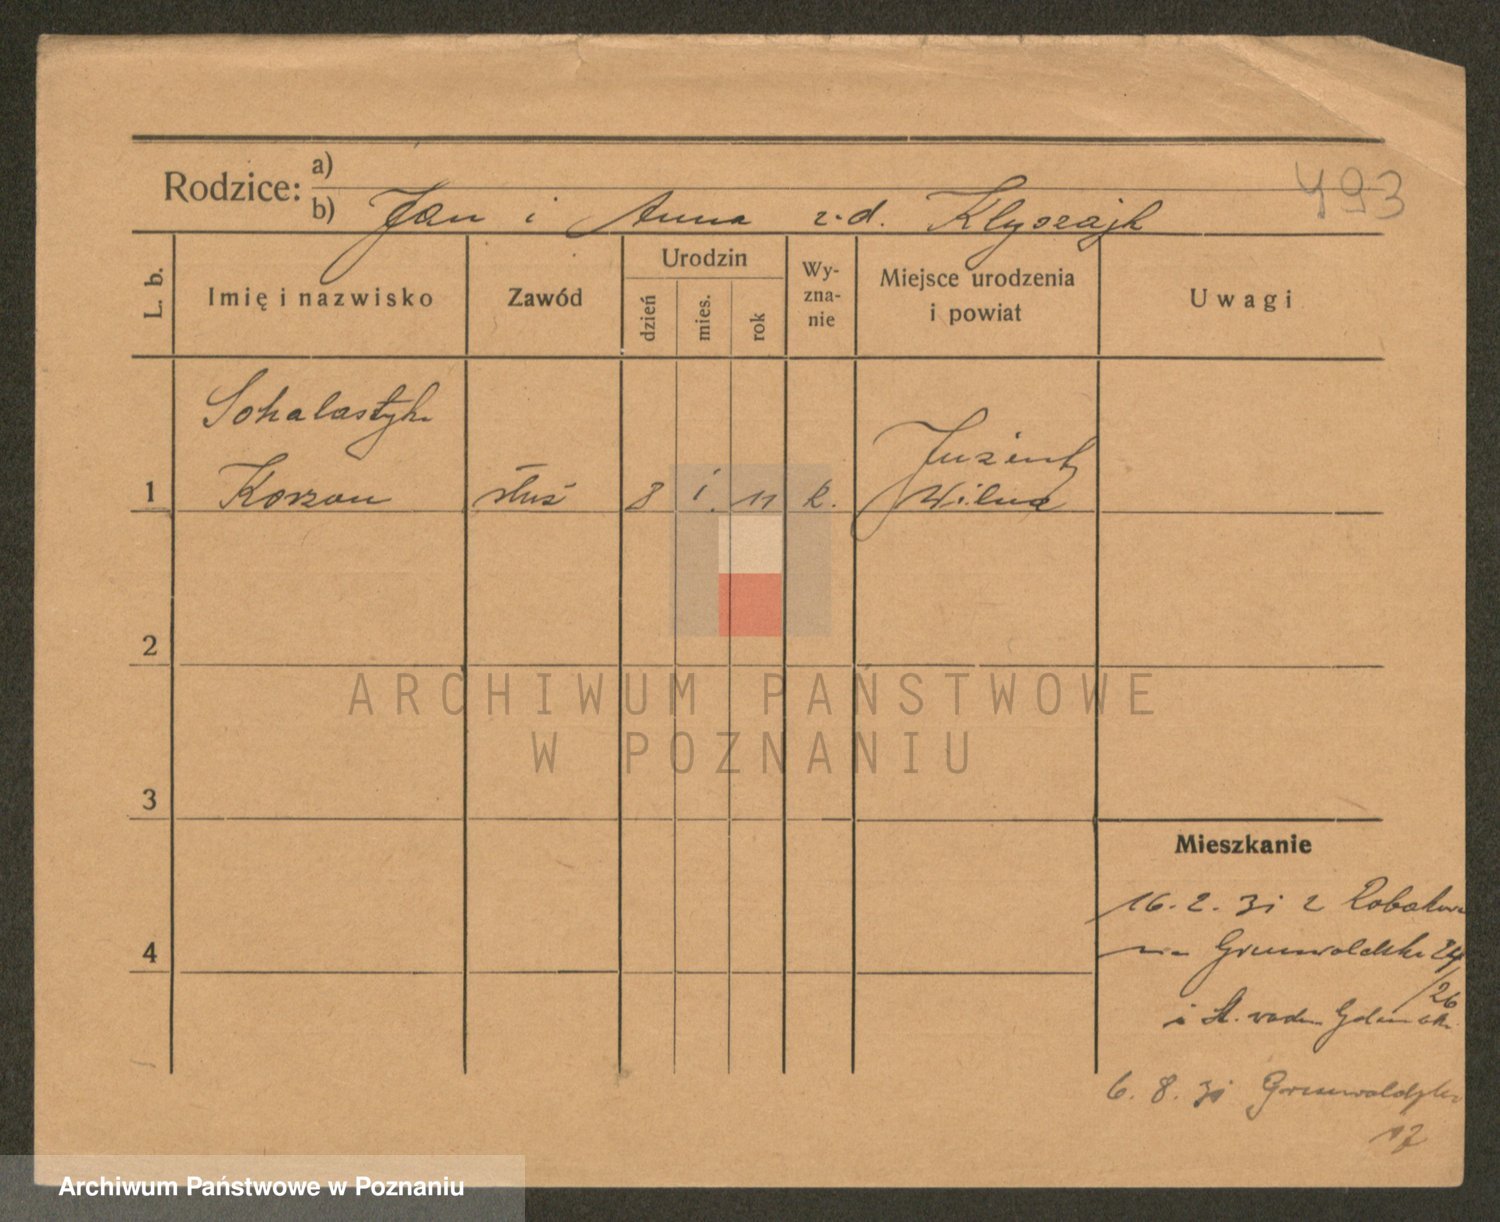 Rodzice:
a)
b) Jan i Anna z.d. Klyszajk
493
L. b.
Imię i nazwisko
Zawód
Urodzin
dzień
mies.
rok
Wy-
zna-
nie
Miejsce urodzenia
i powiat
Uwagi
Sohalastyka
1 Korzon służ 8 i. 11 k.
Wilno
2
3
4
Mieszkanie
16. 2. 31 z
Grunwaldzka 24
/26
6. 8. 31 Grunwaldzka
17
ARCHIWUM PAŃSTWOWE
W POZNANIU
Archiwum Państwowe w Poznaniu